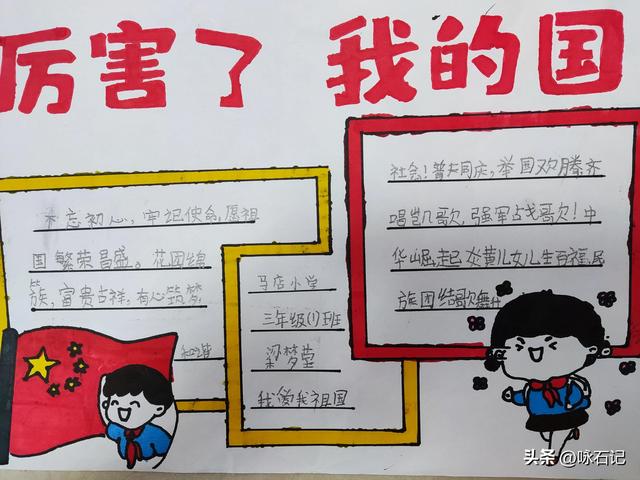 厉害了 我的国
不忘初心,牢记使命,愿祖
国繁荣昌盛。花团锦
簇,富贵吉祥,有心筑梦
和谐
马店小学
三年级(1)班
梁梦莹
我爱我祖国
社会!普天同庆,举国欢腾齐
唱凯歌,强军战歌!中
华崛起炎黄儿女儿生百福,民
族团结歌舞升
头条@咏石记